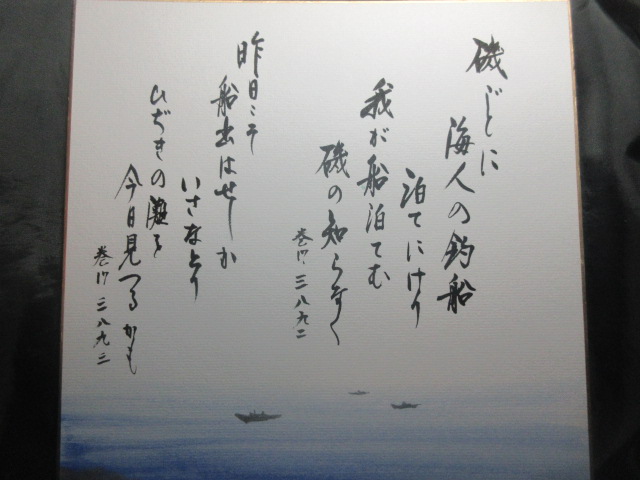 磯ごとに
海人の釣船
泊てにけり
我が船泊てむ
磯の知らなく
巻17 三八九二
昨日こそ
船出はせしか
いさなとり
ひぢきの灘を
今日見つるかも
巻17 三八九三